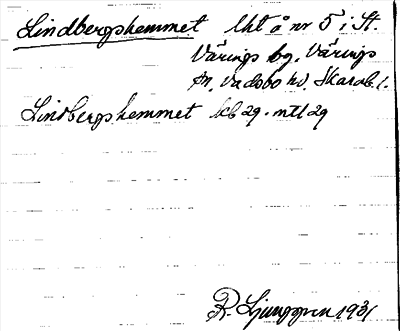 Lindbergshemmet lht å nr 5 i St.
Värings bg. Värings
sn, Vadsbo hd. Skarab. l.
Lindbergshemmet kcb 29. mtl 29
R. Ljunggren 1931